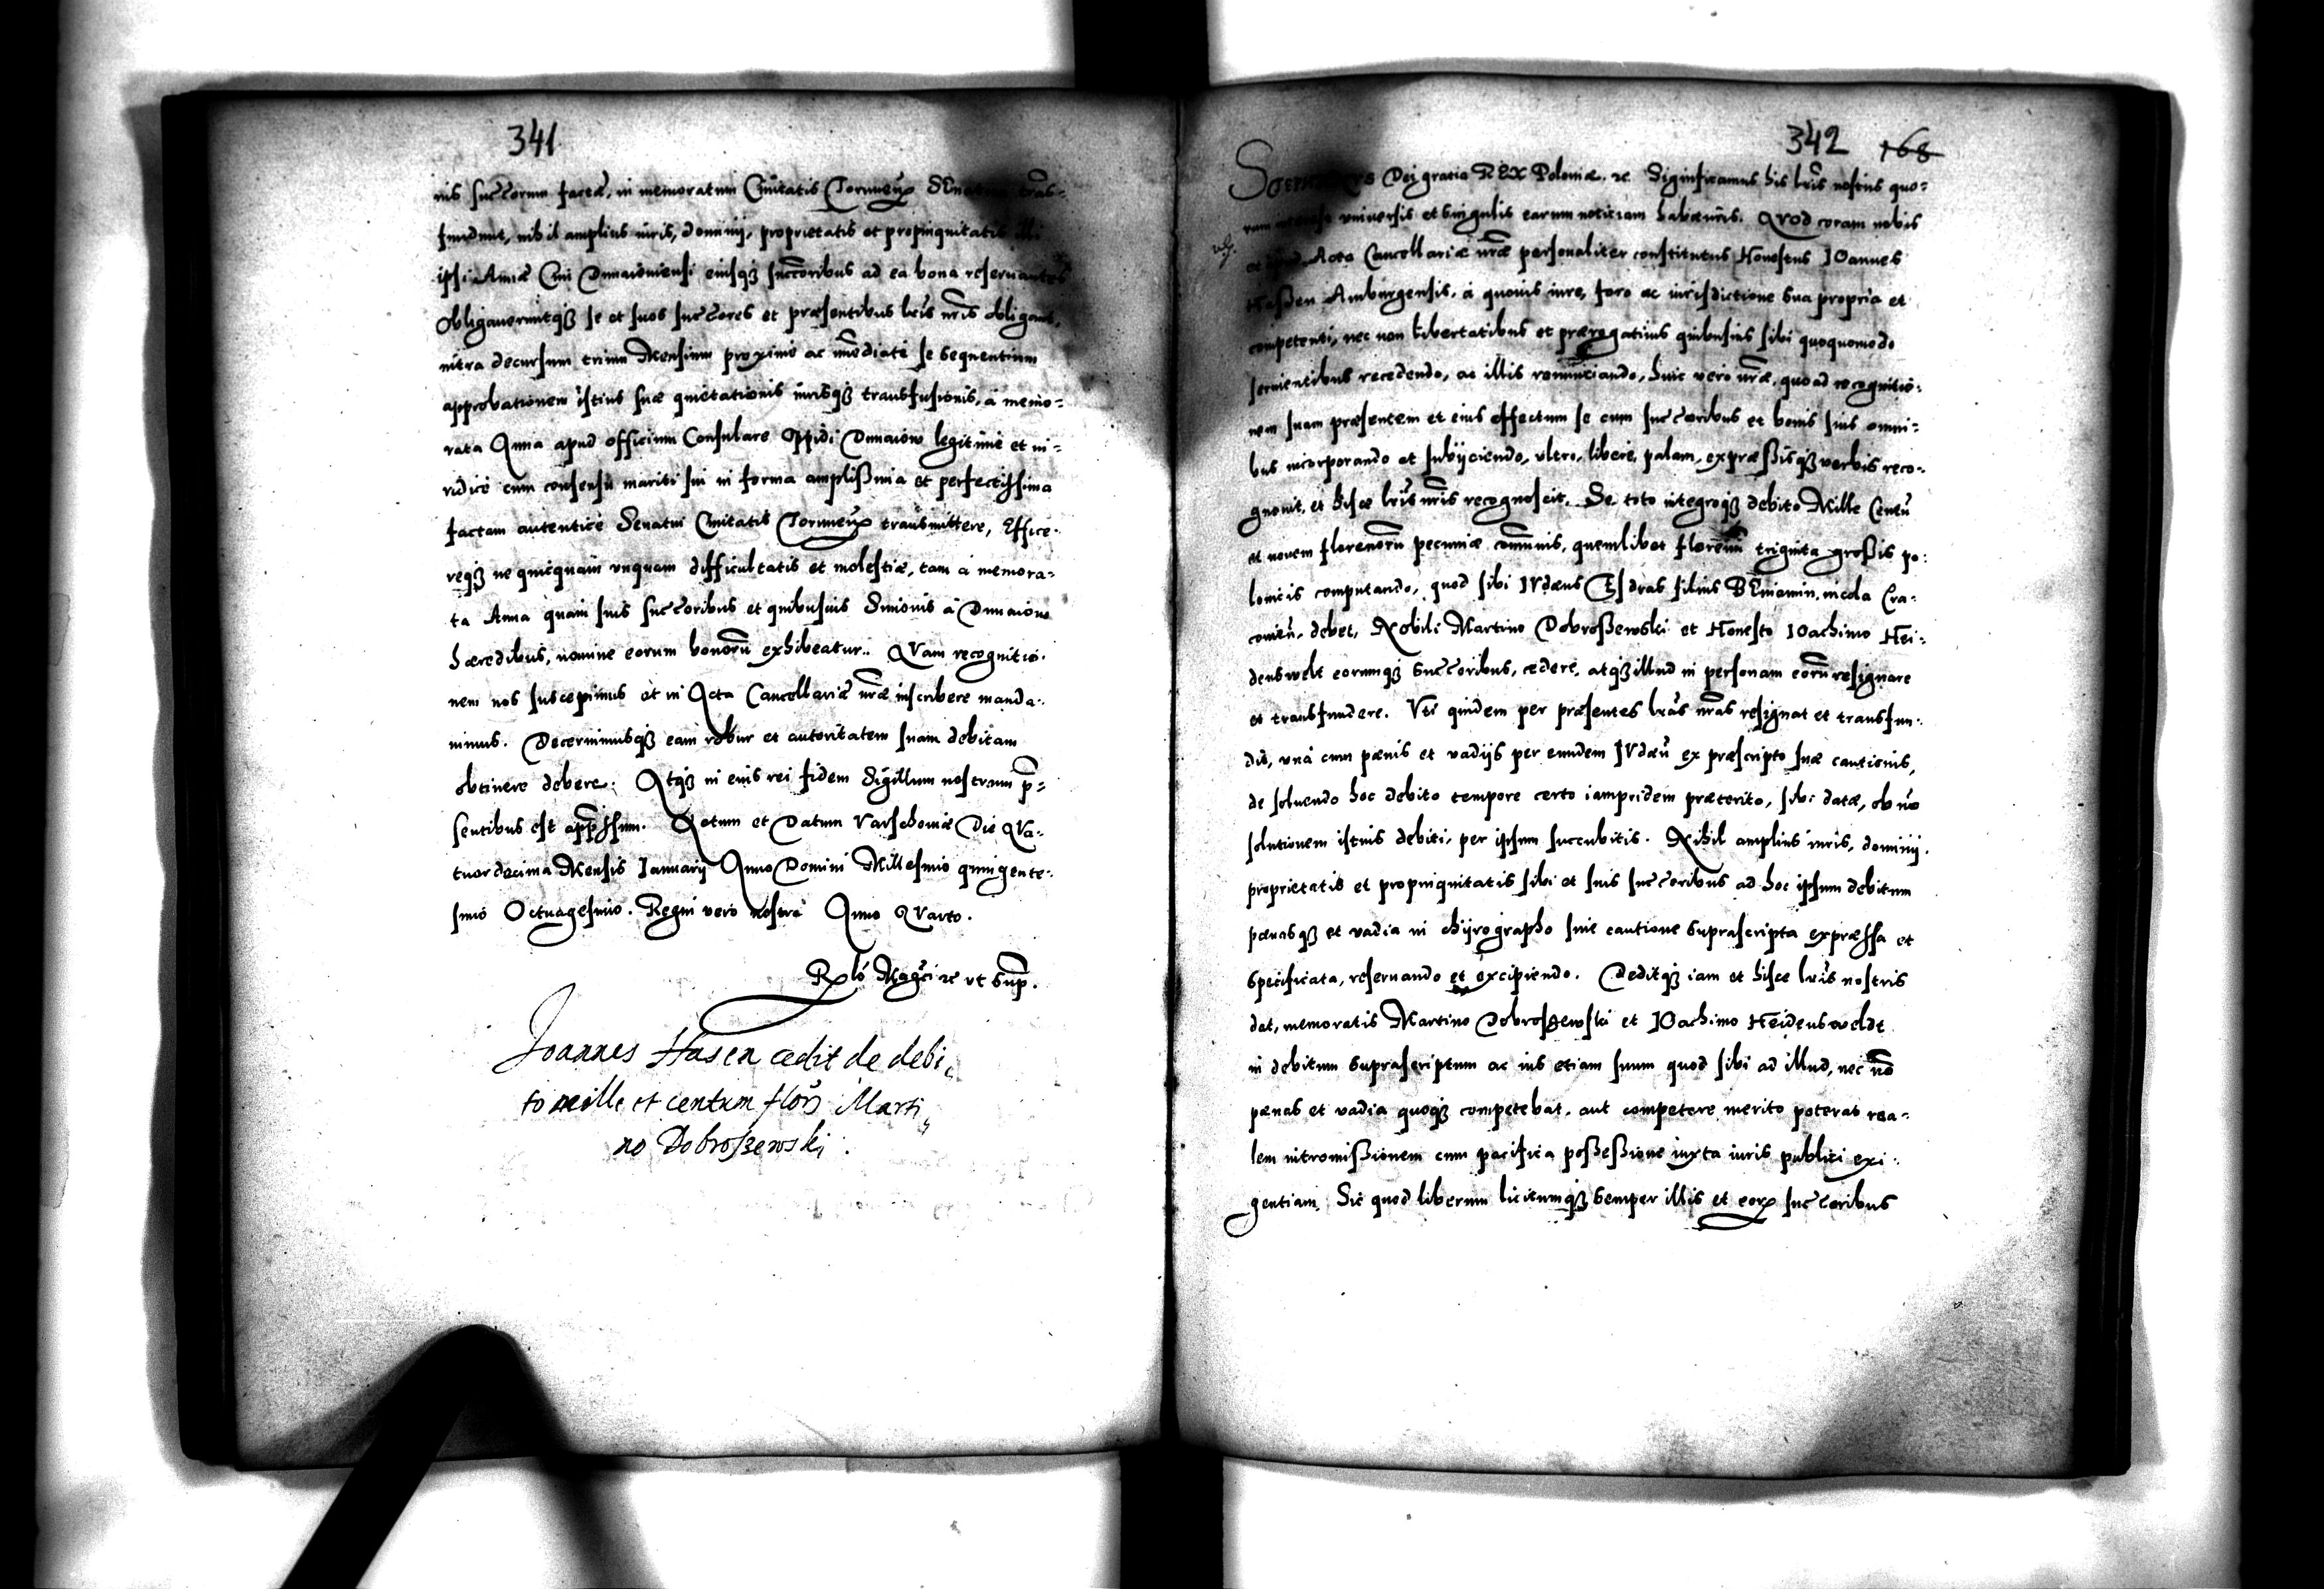 341
nis succorum factae, in memoratum Ciuitatis Torunien SEnatum trãs-
fundunt, nihil amplius iuris, dominij, proprietatis et propinquitatis illi
ipsi Annae Ciui Dunaiouiensi eiusq3 succoribus ad ea bona reseruantes
Obligaueruntq3 se et suos succores et praesentibus lris nris obligant,
intra decursum trium Mensium proximè ac immediatè se sequentium
approbationem istius suae quietationis iurisq3 transfusionis, a memo-
rata Anna apud officium Consulare Oppidi Dunaiow legitimè et iu-
ridicè cum consensu mariti sui in forma amplißima et perfectissima
factam autenticè Senatui Ciuitatis Torunien transmittere, Effice-
req3 ne quicquam vnquam difficultatis et molestiae, tam a memora-
ta Anna quam suis succoribus et quibusuis Simonis à Dunaiow
haeredibus, nomine eorum bonorũ exhibeatur. QVam recognitio-
nem nos suscepimus et in Acta Cancellariae nrae inscribere manda-
uimus. Decernimusq3 eam robur et autoritatem suam debitam
obtinere debere. Atq3 in eius rei fidem Sigillum nostrum p-
sentibus est appssum. Actum et Datum Varschouiae Die QVa-
tuordecima Mensis Ianuarij Anno Domini Millesimo quingente-
simo Octuagesimo. Regni vero nostri Anno QVarto.
Rlo Magci zc vt sup.
Joannes Hasen cedit de debi-
to mille et centum flor Marti-
no Dobroßewski.
342 168
Dei gratia REX Poloniae. zc. Significamus his lris nostris quo-
rum interest vniuersis et singulis earum notitiam habituris. QVod coram nobis
et Acta Cancellariae nrae personaliter constitutus Honestus IOannes
Haßen Amburgensis, á quouis iure, foro ac iurisdictione sua propria et
competenti, nec non libertatibus et praerogatiuis quibusuis sibi quoquomodo
seruientibus recedendo, ac illis renunciando, huic vero nrae, quo ad recognitio-
nem suam praesentem et eius effectum se cum succoribus et bonis suis omni-
bus incorporando et subijciendo, vltro, liberè, palam, expraeßisq3 verbis reco-
gnouit, et hisce lris nris recognoscit. Se toto integroq3 debito Mille Centũ
et nouem florenorũ pecuniae comunis, quemlibet florenũ triginta großis po-
lonicis computando, quod sibi IVdaeus ESdras filius BEniamin, incola Cra-
couien. debet, Nobili Martino Dobroßewski et Honesto IOachimo Hei-
denswelt eorumq3 succoribus, cedere, atq3 illud in personam eorũ resignare
et transfundere. Vti quidem per praesentes lras nras resignat et transfun-
dit, vná cum paenis et vadijs per eundem IVdaeũ ex praescripto suae cautionis,
de soluendo hoc debito tempore certo iampridem praeterito, sibi datae, ob nõ
solutionem istius debiti, per ipsum succubitis. Nihil amplius iuris, dominij,
proprietatis et propinquitatis sibi et suis succoribus ad hoc ipsum debitum
paenasq3 et vadia in chijrographo siue cautione suprascripta expraessa et
specificata, reseruando et excipiendo. Deditq3 iam et hisce lris nostris
dat, memoratis Martino Dobroszewski et IOachimo Heidensweldt
in debitum suprascriptum ac ius etiam suum quod sibi ad illud, nec nõ
paenas et vadia quoq3 competebat, aut competere merito poterat rea-
lem intromißionem cum pacifica poßeßione iuxta iuris publici exi-
gentiam. Sic quod liberum licitumq3 semper illis et eor succoribus